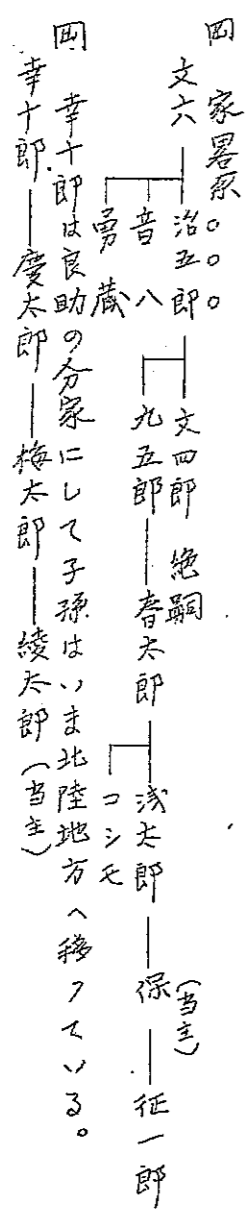 岡 家畧系 〇〇〇
文六――治五郎――文四郎 絶嗣
音八 九五郎――春太郎――浅太郎――保(当主)――征一郎
勇蔵 コシモ
岡 幸十郎は良助の分家にして子孫はいま北陸地方へ移つている。
幸十郎――慶太郎――梅太郎――綾太郎(当主)